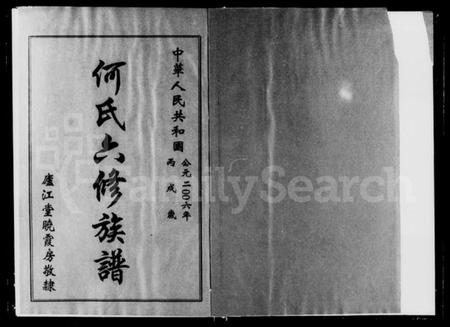 中華人民共和國
公元二00六年
丙戌歲
何氏六修族譜
廬江堂曉霞房敬隸
FamilySearch